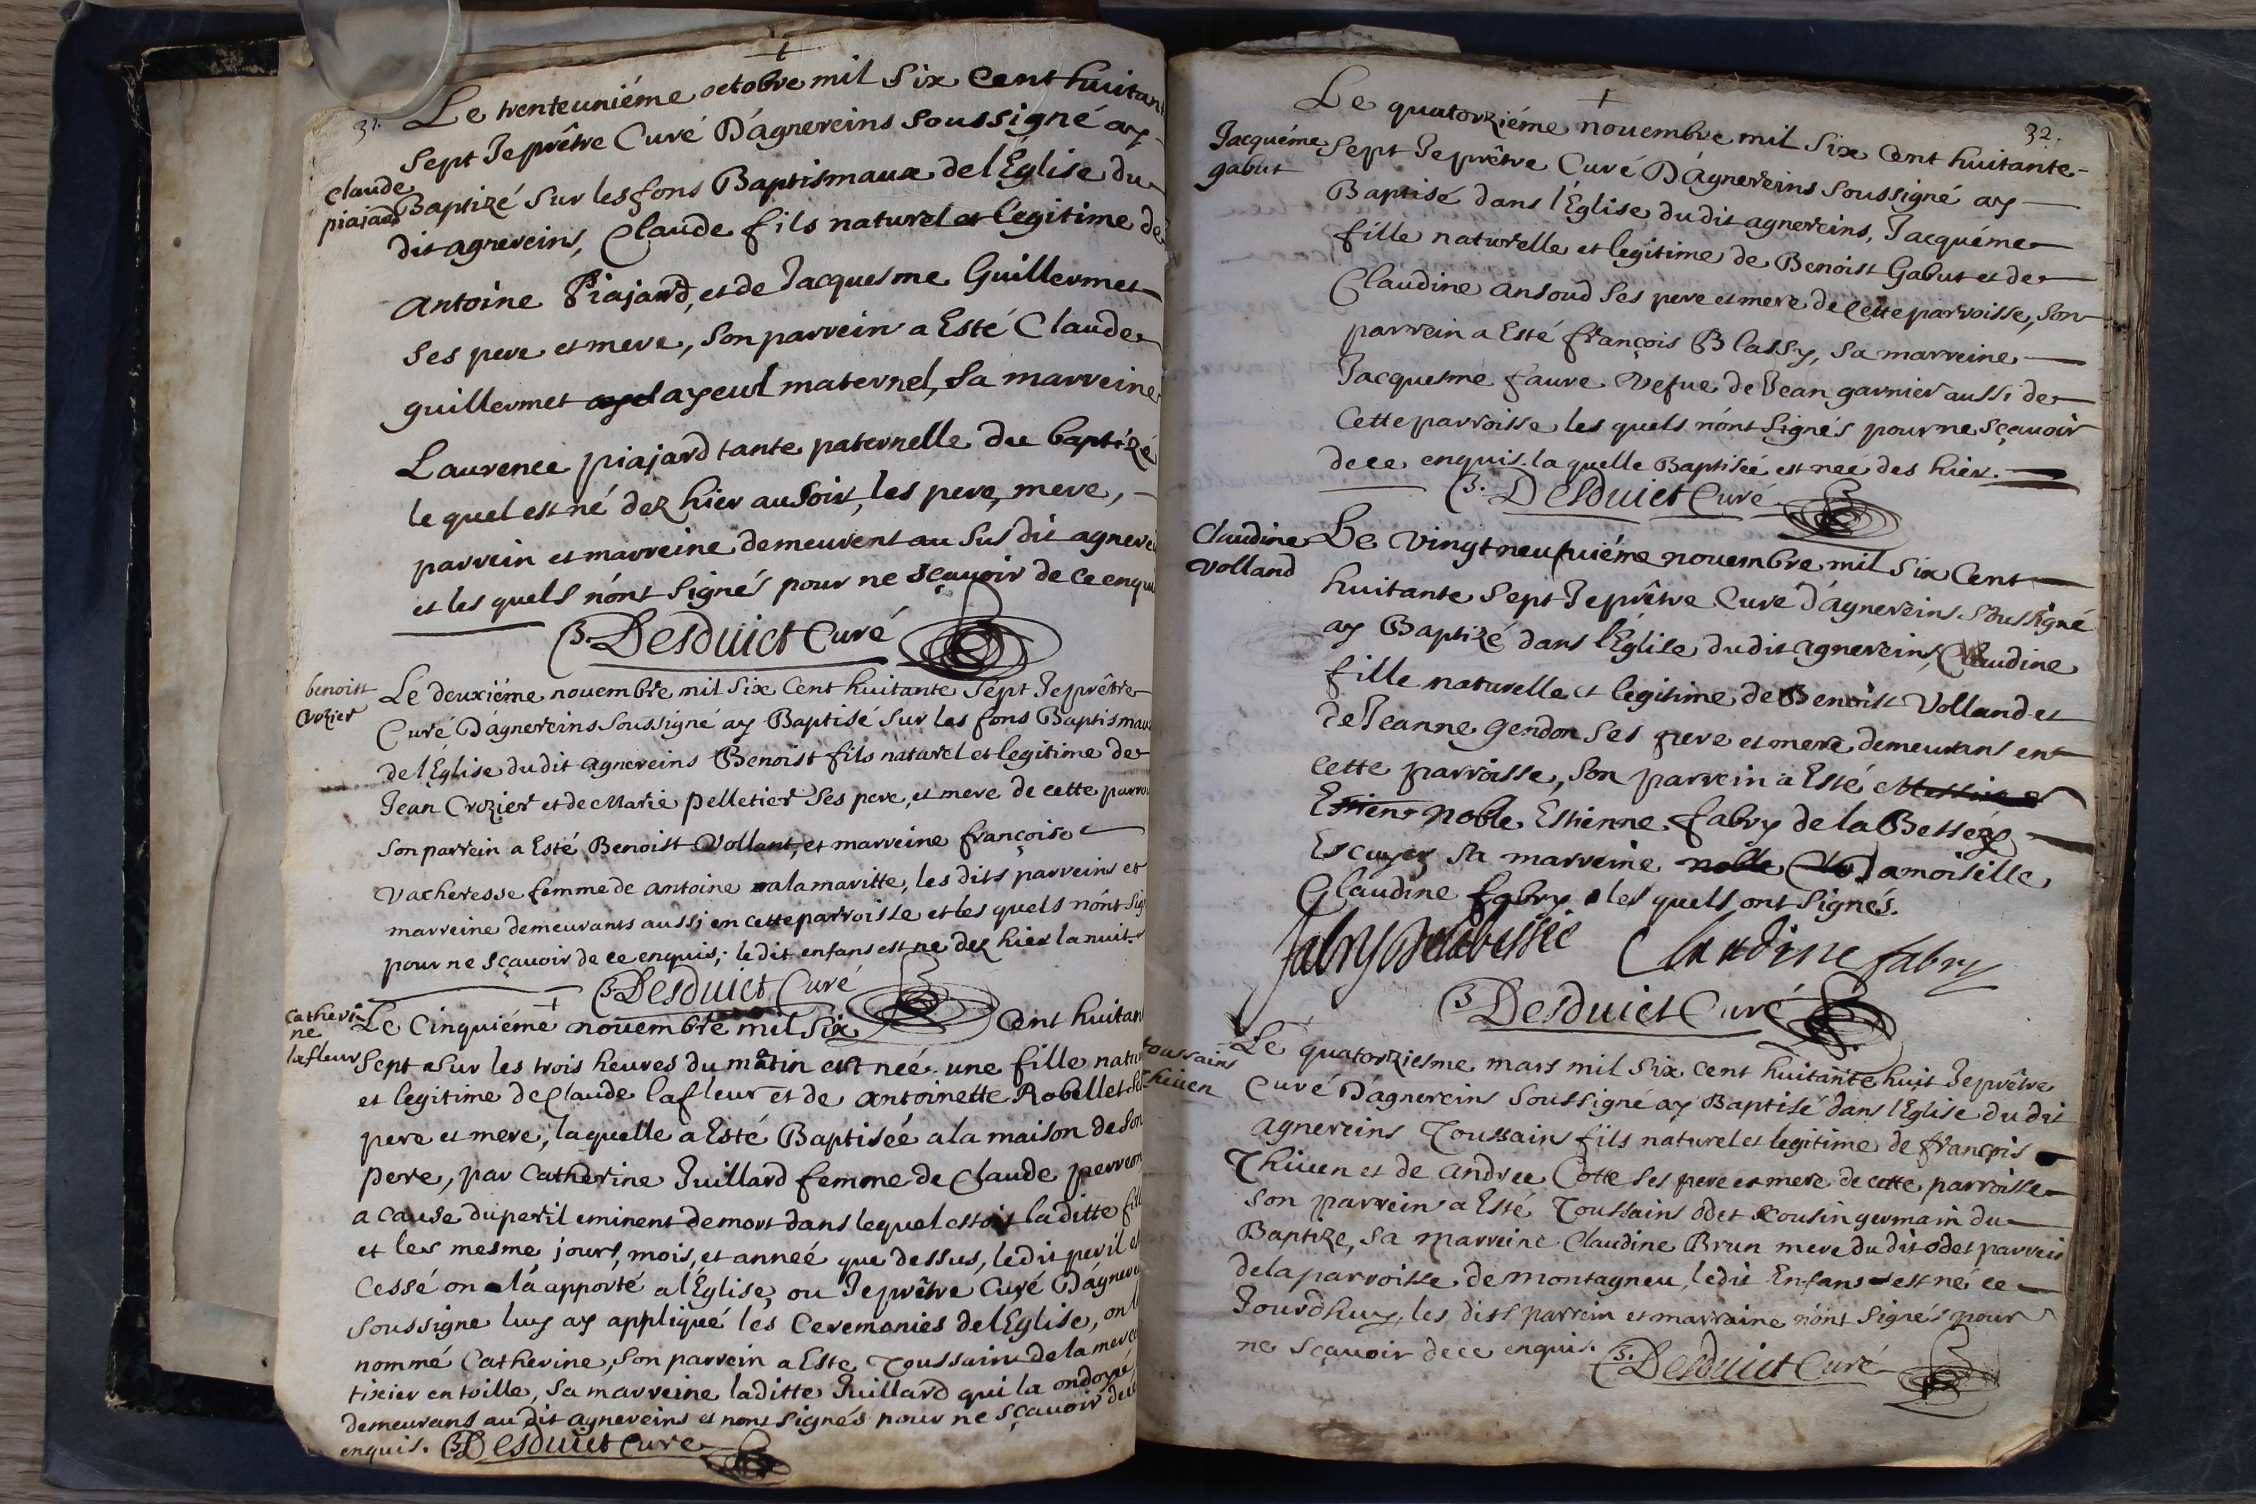 31.
Le trenteuniéme octobre mil six cent huitan
sept Je prêtre Curé D'agnereins soussigné ay
claude
piajard
Baptizé sur les fons Baptismaux de l'Eglise du
dit agnereins, Claude fils naturel et legitime de
antoine Piajard, et de Jacquesme Guillermet
ses pere et mere, son parrein a Esté Claude
guillermet ayeul maternel, sa marreine
Laurence piajard tante paternelle du baptizé
le quel est né dez hier au soir, les pere, mere,
parrein et marreine demeurent au sus dit agnerei
et les quels n'ont signés pour ne sçavoir de ce enqui
B. Desduict Curé
benoist
Crozier
Le deuxiéme nouembre mil six cent huitante sept Je prêtre
Curé D'agnereins soussigné ay Baptisé sur les fons Baptismau
de l'Église du dit agnereins Benoist fils naturel et legitime de
Jean Crozier et de Marie pelletier ses pere, et mere de cette parro
son parrein a Esté Benoist Vollant, et marreine françoise
vacheresse femme de antoine alamaritte, les dits parreins et
marreine demeurants aussi en cette parroisse et les quels n'ont sig
pour ne sçavoir de ce enquis; le dit enfans est ne dez hier la nuit
B. Desduict Curé
catheri
ne
lafleur
Le cinquiéme nouembre mil six cent huitan
sept sur les trois heures du matin est née une fille natu
et legitime de Claude lafleur et de antoinette Robellet se
pere et mere; laquelle a Esté Baptiséé a la maison de son
pere, par Catherine Juillard femme de Claude perreon
a cause du peril eminent de mort dans lequel estoit la ditte fill
et les mesme jours, mois, et annéé que dessus, le dit peril e
cessé on l'a apporté a l'Église, ou Je prêtre Curé D'agnere
soussigne luy ay appliqué les Ceremonies de l'Eglise, on l
nommé Catherine, son parrein a Este Toussain de la merce
tixier en toille, sa marreine la ditte Juillard qui la ondoyé
demeurans au dit agnereins et n'ont signés pour ne sçavoir de ce
enquis. B. Desduict Curé
32.
Jacquéme
gabut
Le quatorziéme nouembre mil six cent huitante
sept Je prêtre Curé D'agnereins soussigné ay
Baptisé dans l'Église du dit agnereins, Jacquéme
fille naturelle et legitime de Benoist Gabut et de
Claudine ansoud ses pere et mere de cette parroisse, son
parrein a Esté françois Blassy, sa marreine
Jacquesme faure vefue de Jean garnier aussi de
cette parroisse les quels n'ont signés pour ne sçavoir
de ce enquis. la quelle Baptiséé est néé des hier.
B. Desduict Curé
Claudine
volland
Le vingt neufuiéme nouembre mil six Cent
huitante sept Je prêtre Curé d'agnereins soussigné
ay Baptizé dans l'Église du dit agnereins, Claudine
fille naturelle et legitime de Benoist Volland et
de Jeanne gendon ses pere et mere demeurans en
cette parroisse, son parrein a Esté Messire
Estien noble Estienne fabry de la Bessée
Escuyer sa marreine noble Cla Damoiselle
Claudine fabry les quels ont signés.
fabry de la bessée Claudine fabry
B. Desduict Curé
toussains
thiuen
Le quatorziesme mars mil six cent huitante huit Je prêtre
Curé D'agnereins soussigne ay Baptisé dans l'Eglise du dit
agnereins Toussains fils naturel et legitime de françois
Thiuen et de andree Cotte ses pere et mere de cette parroisse
son parrein a Esté Toussains odet cousin germain du
Baptize, sa marreine Claudine Brun mere du dit odet parrein
de la parroisse de montagneu, le dit Enfans est né ce
Jourd'huy, les dits parrein et marraine n'ont signés pour
ne sçavoir de ce enquis.
B. Desduict Curé